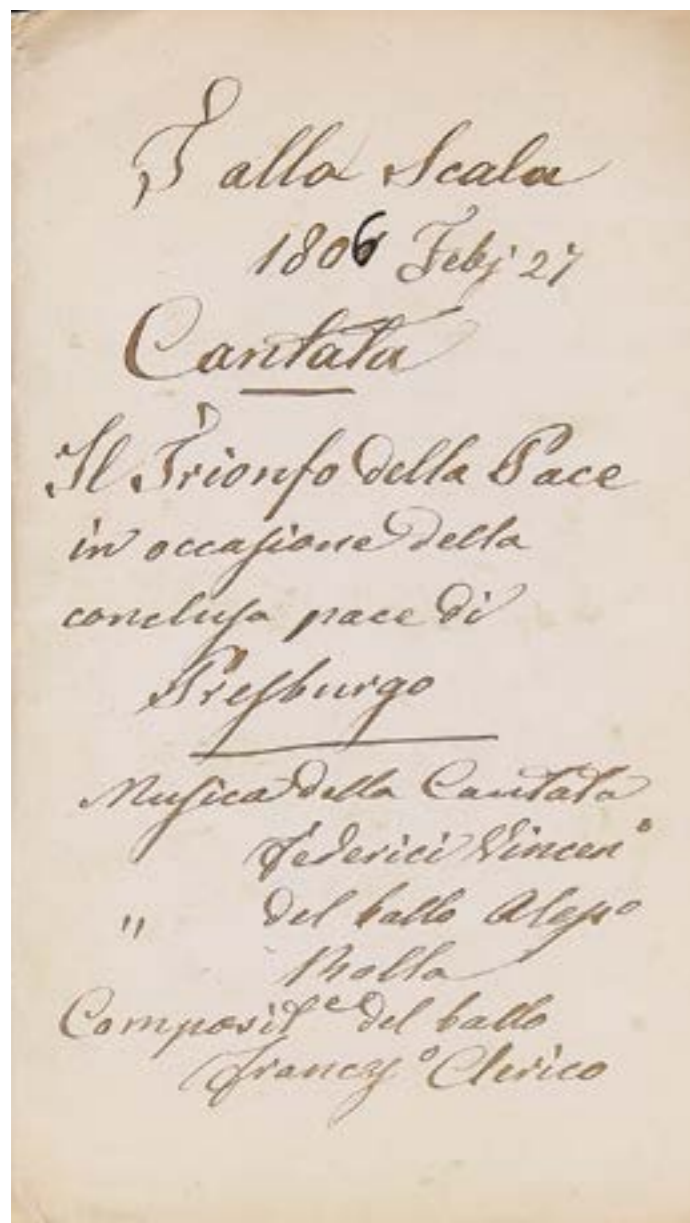 T alla Scala
1806 Febj 27
Cantata
Il Trionfo della Pace
in occasione della
conclusa pace di
Presburgo
Musica della Cantata
Federici Vincenº
" del ballo Alessº
Rolla
Composit^e del ballo
Francescº Clerico